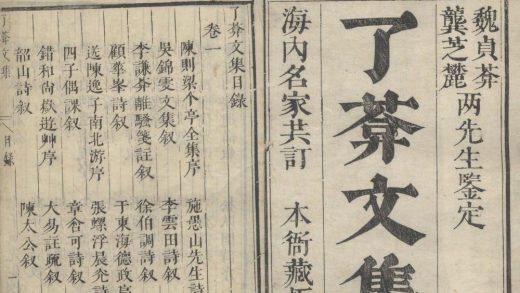 魏貞葊
龔芝麓
两先生鑒定
了葊文集
海内名家共訂 本衙藏
了葊文集目錄
卷一
陳則梁个亭全集序 施愚山先生詩
吳錦雯文集叙 李雲田詩叙
李謙葊離騷箋註叙 徐伯調詩叙
顧華峯詩叙 于東海德政序
送陳逸子南北游序 張螺浮晨発詩
四子偶課叙 章含可詩叙
錯和尚嶽遊艸序 大易註疏叙
韶山詩叙 陳太公叙
了葊文集 目錄 一